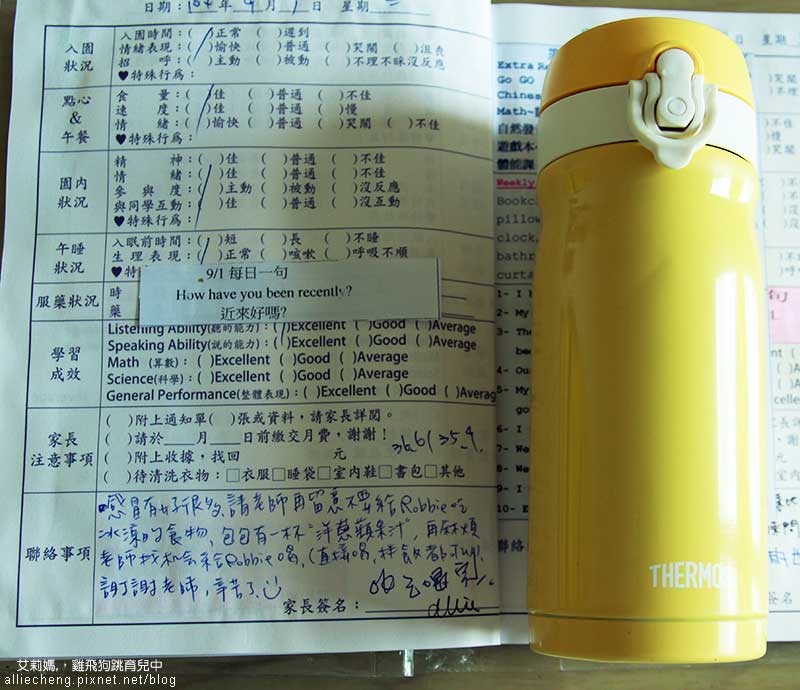 日期：104年9月1日 星期二
入園狀況
入園時間：( )正常 ( )遲到
情緒表現：( )愉快 ( )普通 ( )哭鬧 ( )沮喪
招　呼：( )主動 ( )被動 ( )不理不睬沒反應
♥特殊行為：
點心&午餐
食　量：( )佳 ( )普通 ( )不佳
速　度：( )佳 ( )普通 ( )慢
情　緒：( )愉快 ( )普通 ( )哭鬧 ( )不佳
♥特殊行為：
園內狀況
精　神：( )佳 ( )普通 ( )不佳
情　緒：( )佳 ( )普通 ( )不佳
參 與 度：( )主動 ( )被動 ( )沒反應
與同學互動：( )佳 ( )普通 ( )沒互動
♥特殊行為：
午睡狀況
入眠前時間：( )短 ( )長 ( )不睡
生理表現：( )正常 ( )咳嗽 ( )呼吸不順
♥特
9/1 每日一句
How have you been recently?
近來好嗎?
服藥狀況
時
藥
學習成效
Listening Ability(聽的能力)：( )Excellent ( )Good ( )Average
Speaking Ability(說的能力)：( )Excellent ( )Good ( )Average
Math (算數)：( )Excellent ( )Good ( )Average
Science(科學)：( )Excellent ( )Good ( )Average
General Performance(整體表現)：( )Excellent ( )Good ( )Averag
家長注意事項
( )附上通知單( )張或資料，請家長詳閱。
( )請於___月___日前繳交月費，謝謝！
( )附上收據，找回　　元
36.6/35.9
( )待清洗衣物：□衣服□睡袋□室內鞋□書包□其他
聯絡事項
感冒有好很多,請老師再留意不要給Robbie吃
冰涼的食物,包包有一杯"洋蔥蘋果汁",再麻煩
老師找机会來給Robbie喝,(直接喝,拌飯都可以)
謝謝老師,辛苦了
家長簽名：
Allie
Extra Re
Go GO
Chines
Math~
自然發
遊戲本
體能課
Weekly
Bookca
pillow
clock,
bathr
curta
1- I
2- My
3- The
bee
4- Ou
5- My
go
6- I
7- We
8- We
9- I
10- E
星期
THERMOS
艾莉媽,，雞飛狗跳育兒中
alliecheng.pixnet.net/blog